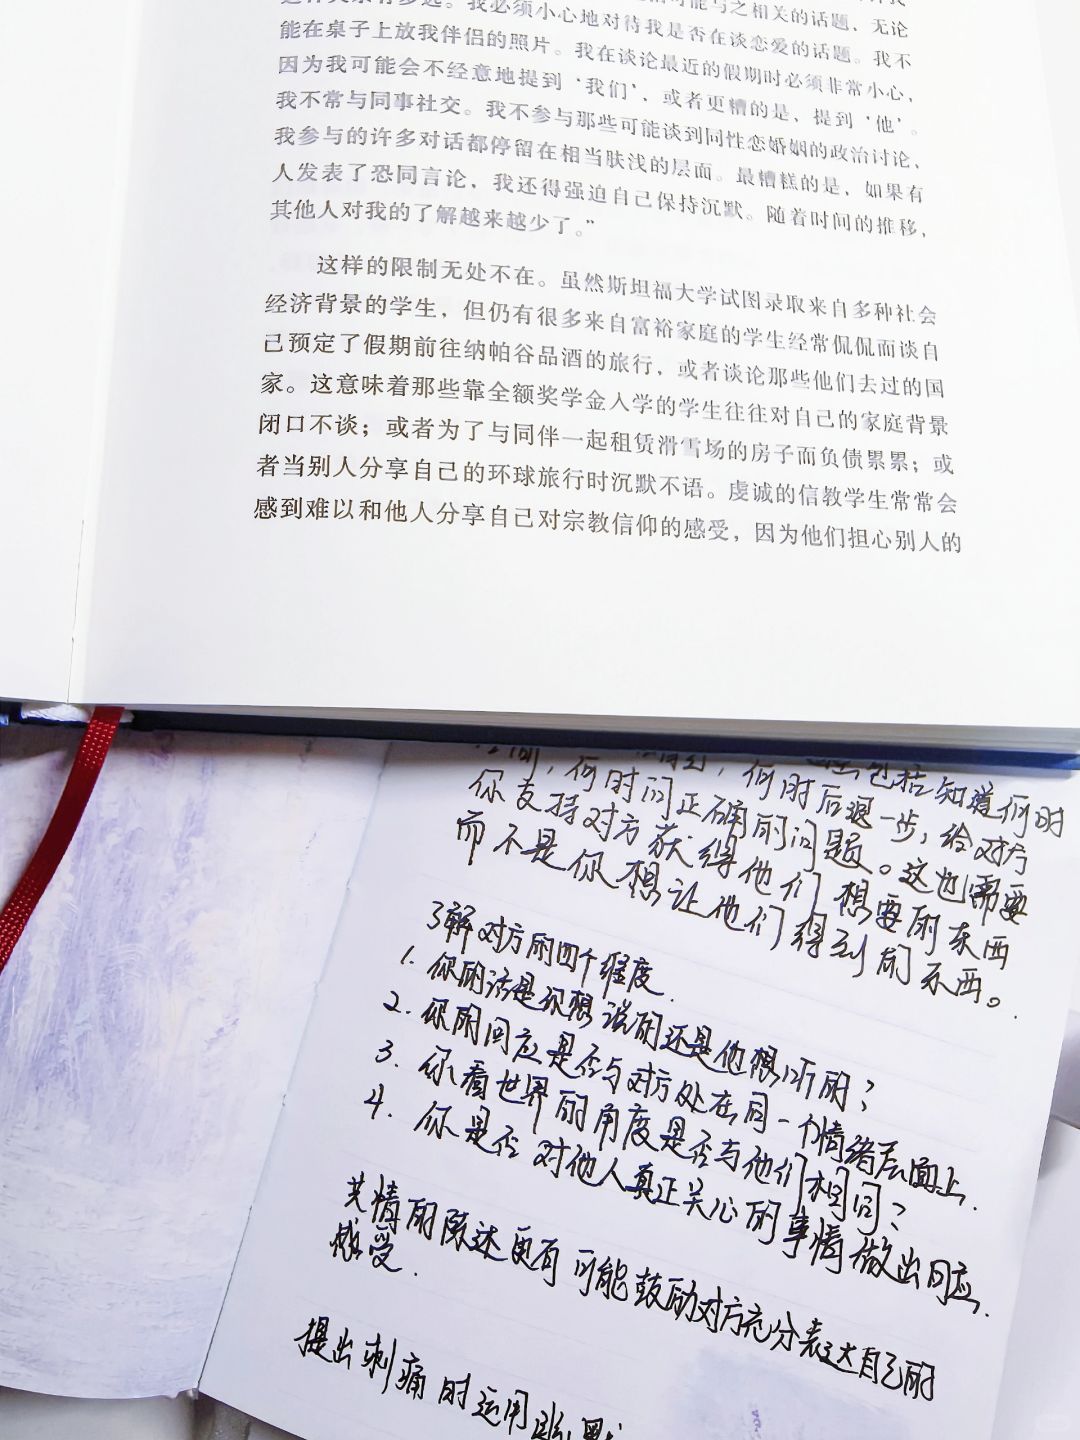 能在桌子上放我伴侣的照片。我在谈论最近的假期时必须非常小心，
因为我可能会不经意地提到‘我们’，或者更糟的是，提到‘他’。
我不常与同事社交。我不参与那些可能谈到同性恋婚姻的政治讨论，
我参与的许多对话都停留在相当肤浅的层面。最糟糕的是，如果有
人发表了恐同言论，我还得强迫自己保持沉默。随着时间的推移，
其他人对我的了解越来越少了。”
这样的限制无处不在。虽然斯坦福大学试图录取来自多种社会
经济背景的学生，但仍有很多来自富裕家庭的学生经常侃侃而谈自
己预定了假期前往纳帕谷品酒的旅行，或者谈论那些他们去过的国
家。这意味着那些靠全额奖学金入学的学生往往对自己的家庭背景
闭口不谈；或者为了与同伴一起租赁滑雪场的房子而负债累累；或
者当别人分享自己的环球旅行时沉默不语。虔诚的信教学生常常会
感到难以和他人分享自己对宗教信仰的感受，因为他们担心别人的
包括知道何时
何时问正确的问题。何时后退一步，给对方
你支持对方获得他们想要的东西
而不是你想让他们得到的东西。
了解对方的四个维度.
1. 你的话是你想说的还是他想听的？
2. 你的回应是否与对方处在同一个情绪层面上.
3. 你看世界的角度是否与他们相同？
4. 你是否对他人真正关心的事情做出回应.
共情的陈述更有可能鼓励对方充分表达自己的
感受.
提出刺痛时运用